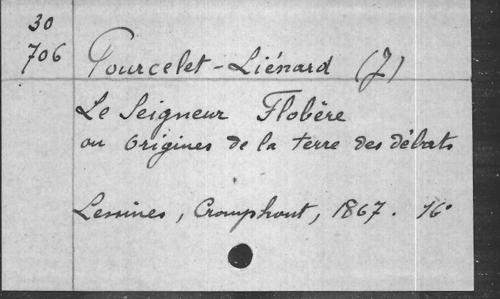 30
706
Pourcelet-Liénard (J)
Le Seigneur Flobère
ou Origines de la terre des débats
Lessines, Cromphout, 1867. 16°